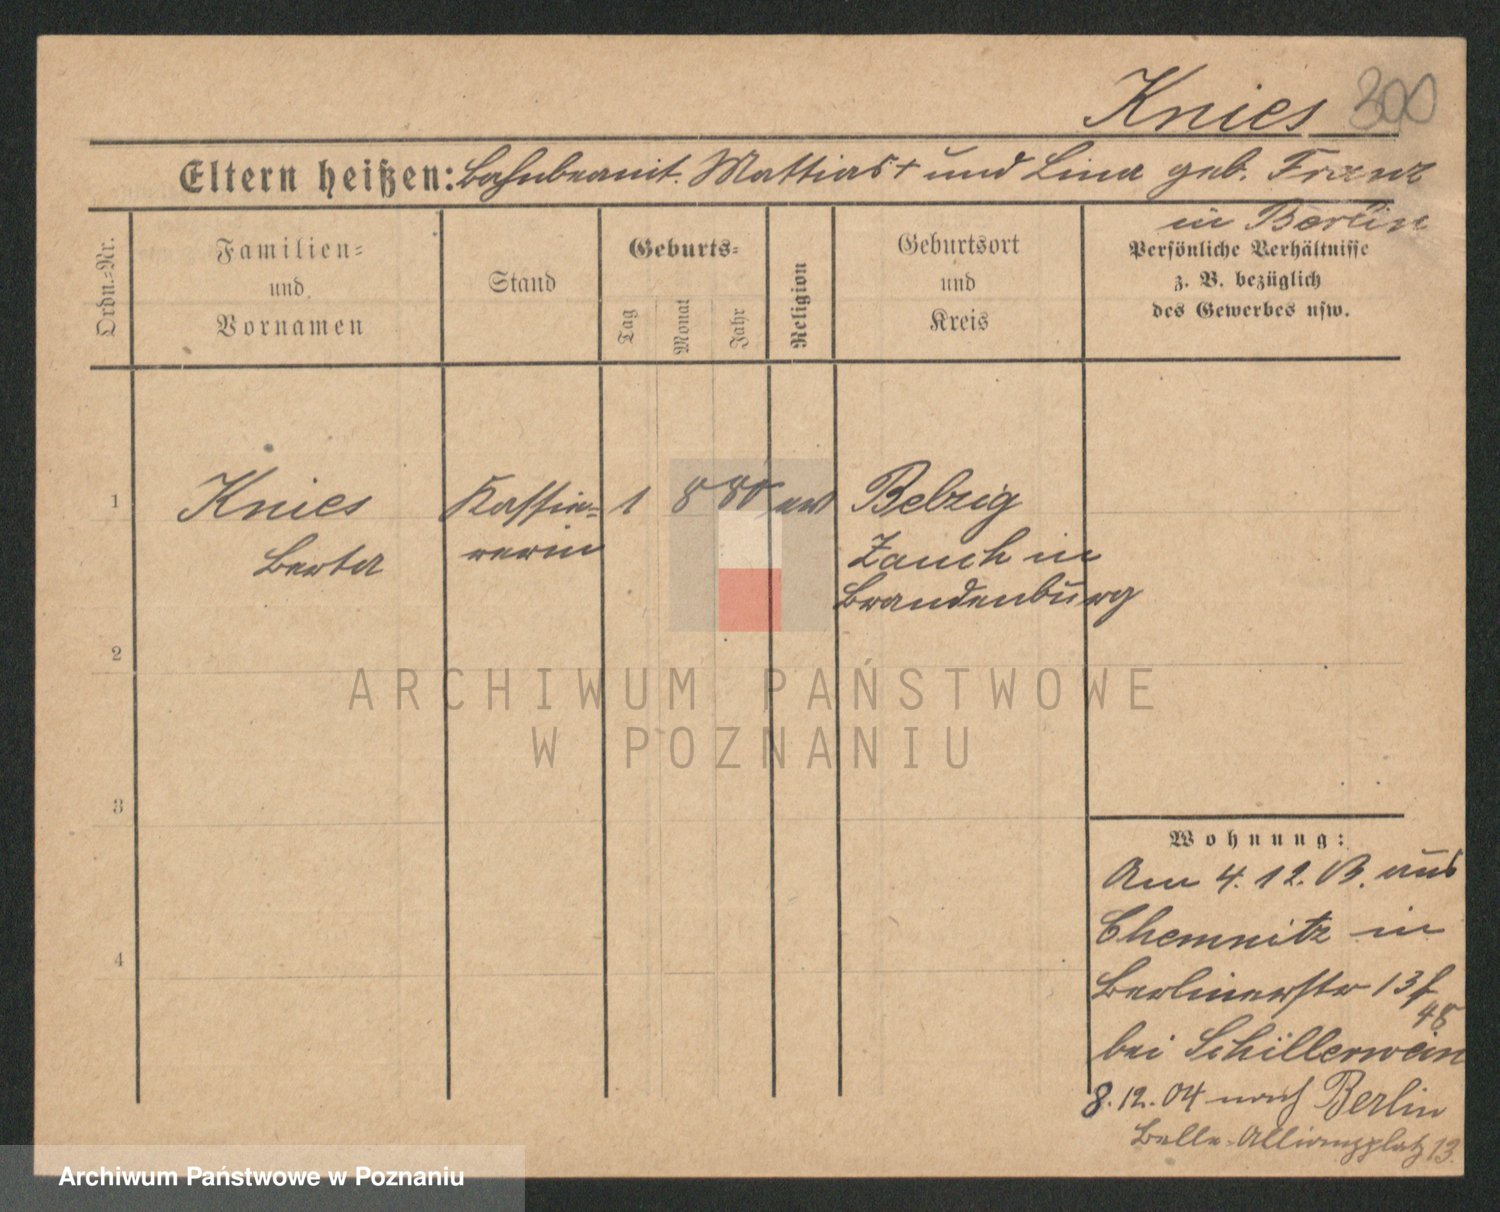 Knies 300
Eltern heißen: Bahnbeamt. Mattias + und Lina geb. Franz
in Berlin
Ordn.=Nr.
Familien=
und
Vornamen
Stand
Geburts=
Tag
Monat
Jahr
Religion
Geburtsort
und
Kreis
Persönliche Verhältnisse
z. B. bezüglich
des Gewerbes usw.
1 Knies Kassie= 1 8 80 ev Belzig
Berta rerin Zauch in
Brandenburg
2
3
4
Wohnung:
Am 4. 12. aus
Chemnitz in
Berlinerstr 13
bei Schillerwein
8. 12. 04 nach Berlin
Belle-Allianzplatz 13.
ARCHIWUM PAŃSTWOWE
W POZNANIU
Archiwum Państwowe w Poznaniu